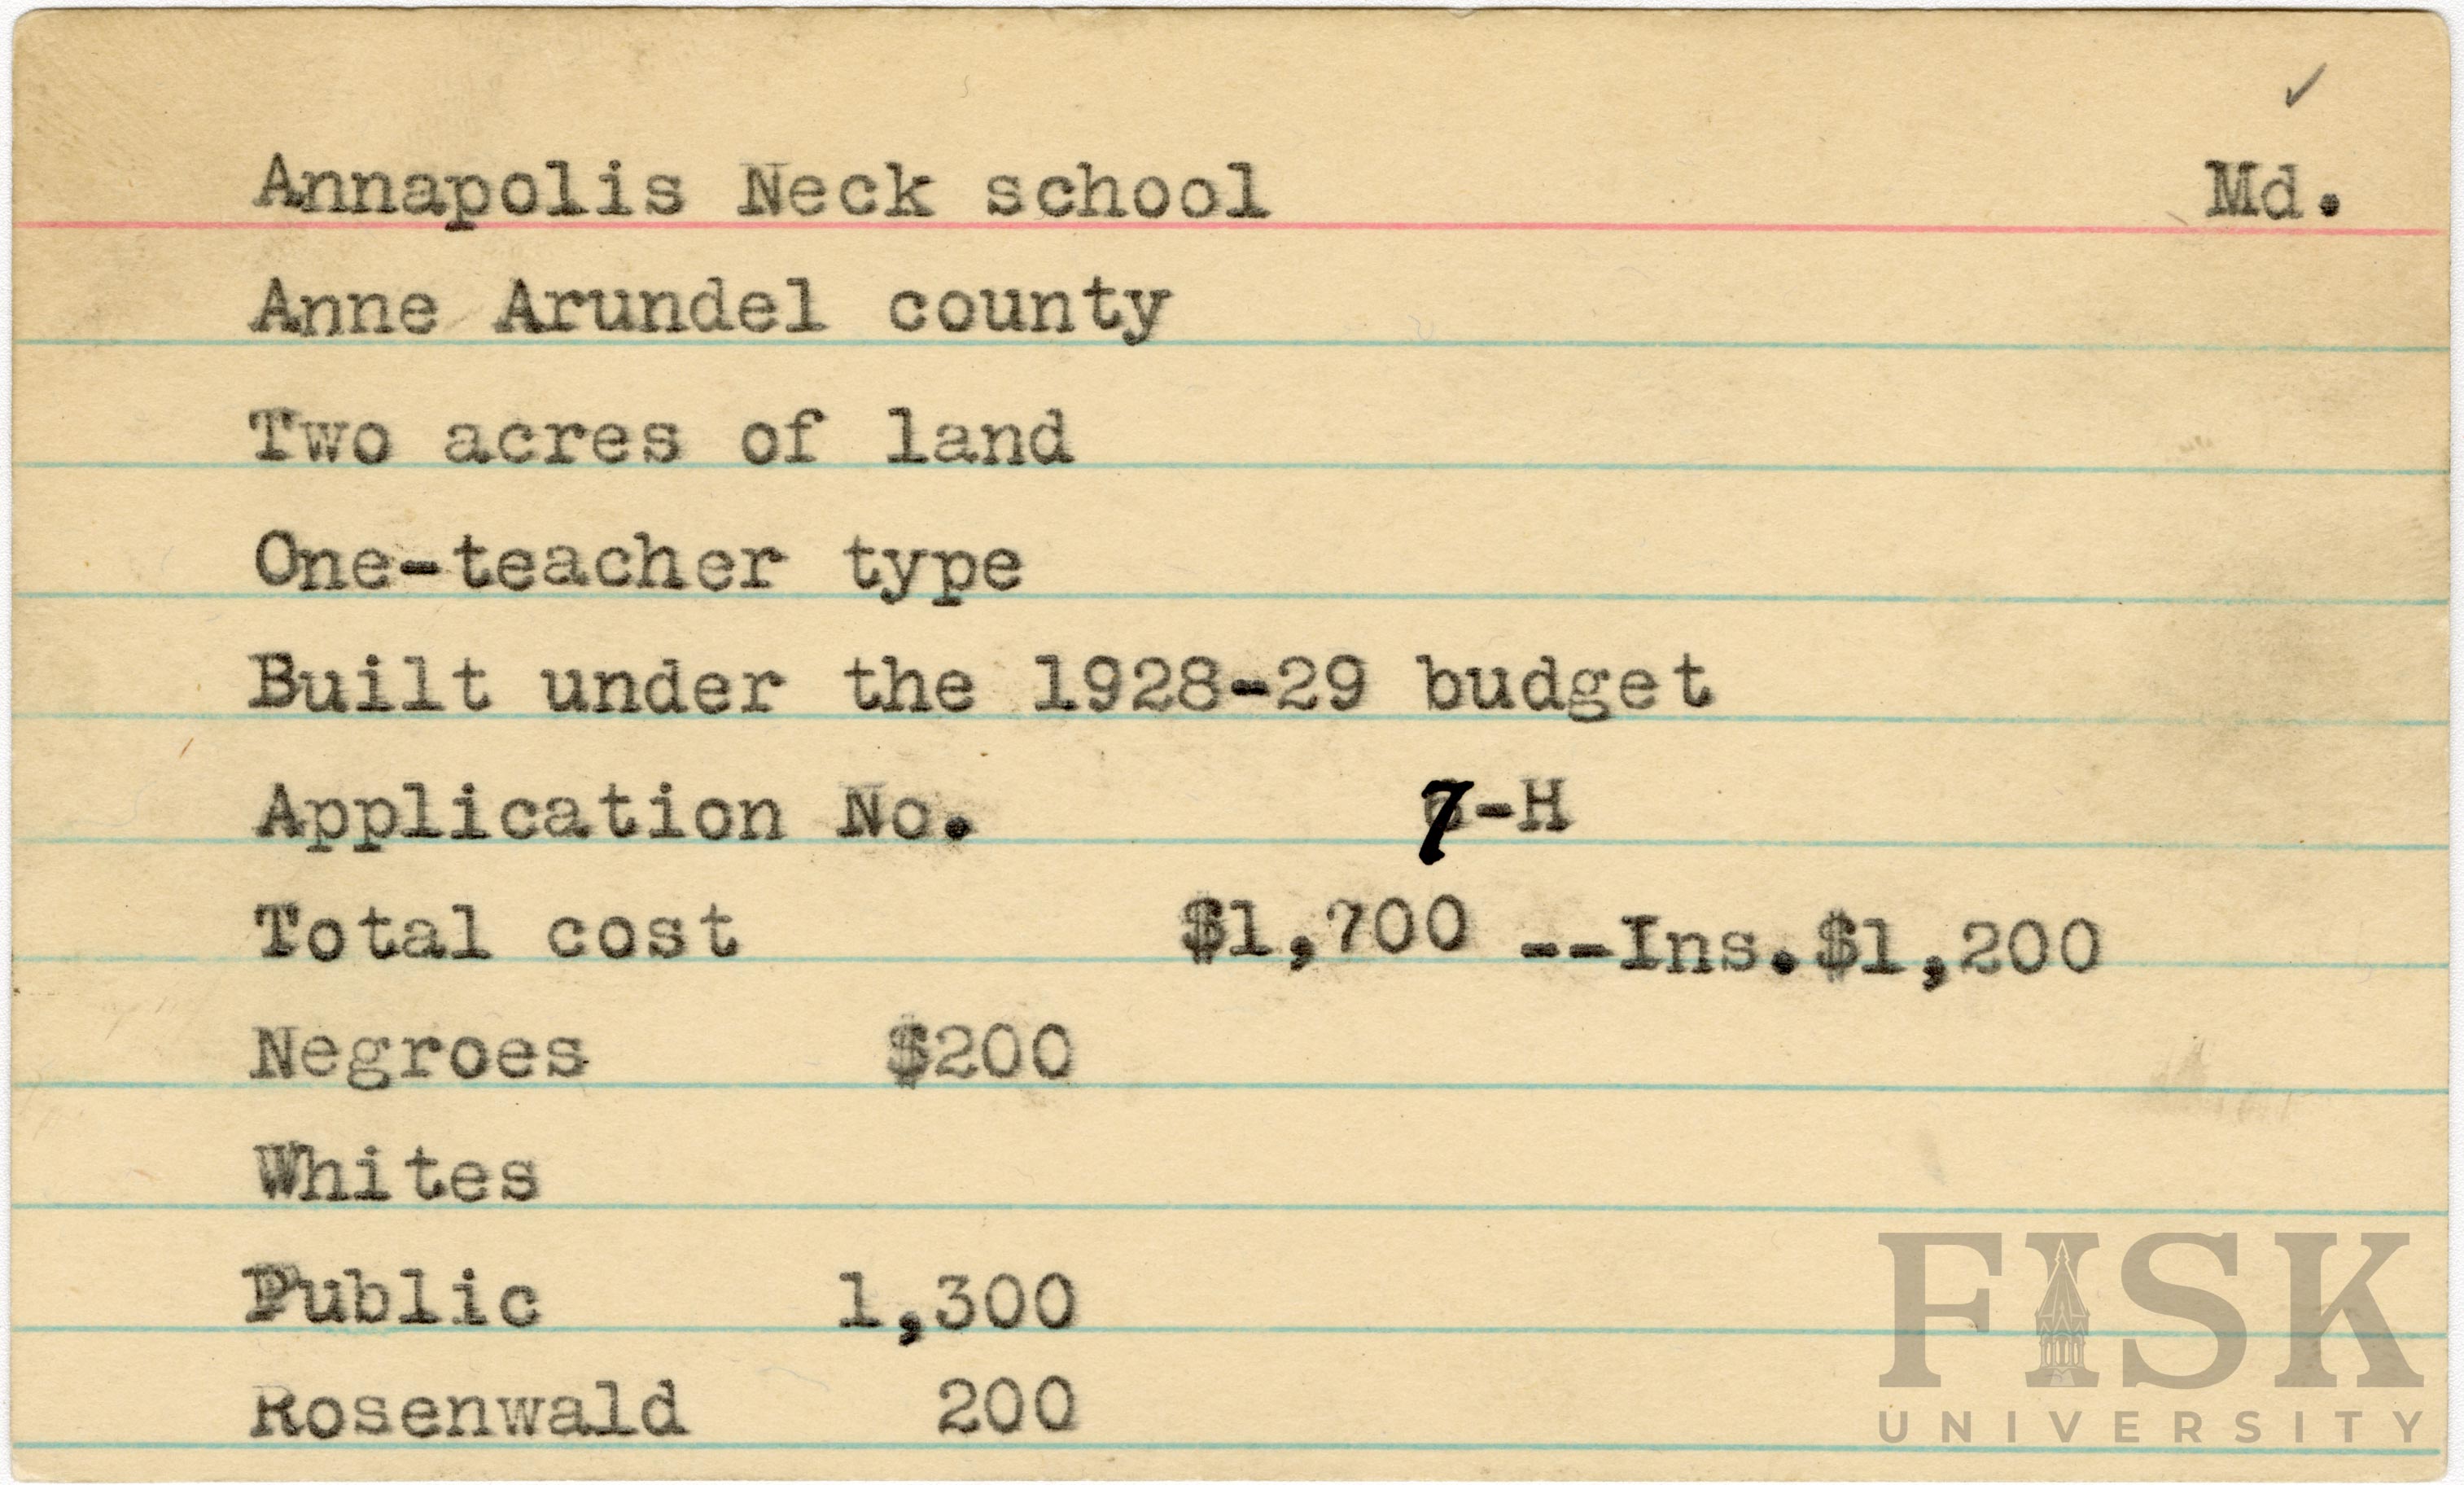 ✓
Annapolis Neck school Md.
Anne Arundel county
Two acres of land
One-teacher type
Built under the 1928-29 budget
Application No. 7-H
Total cost $1,700 --Ins.$1,200
Negroes $200
Whites
Public 1,300
Rosenwald 200
FISK
UNIVERSITY